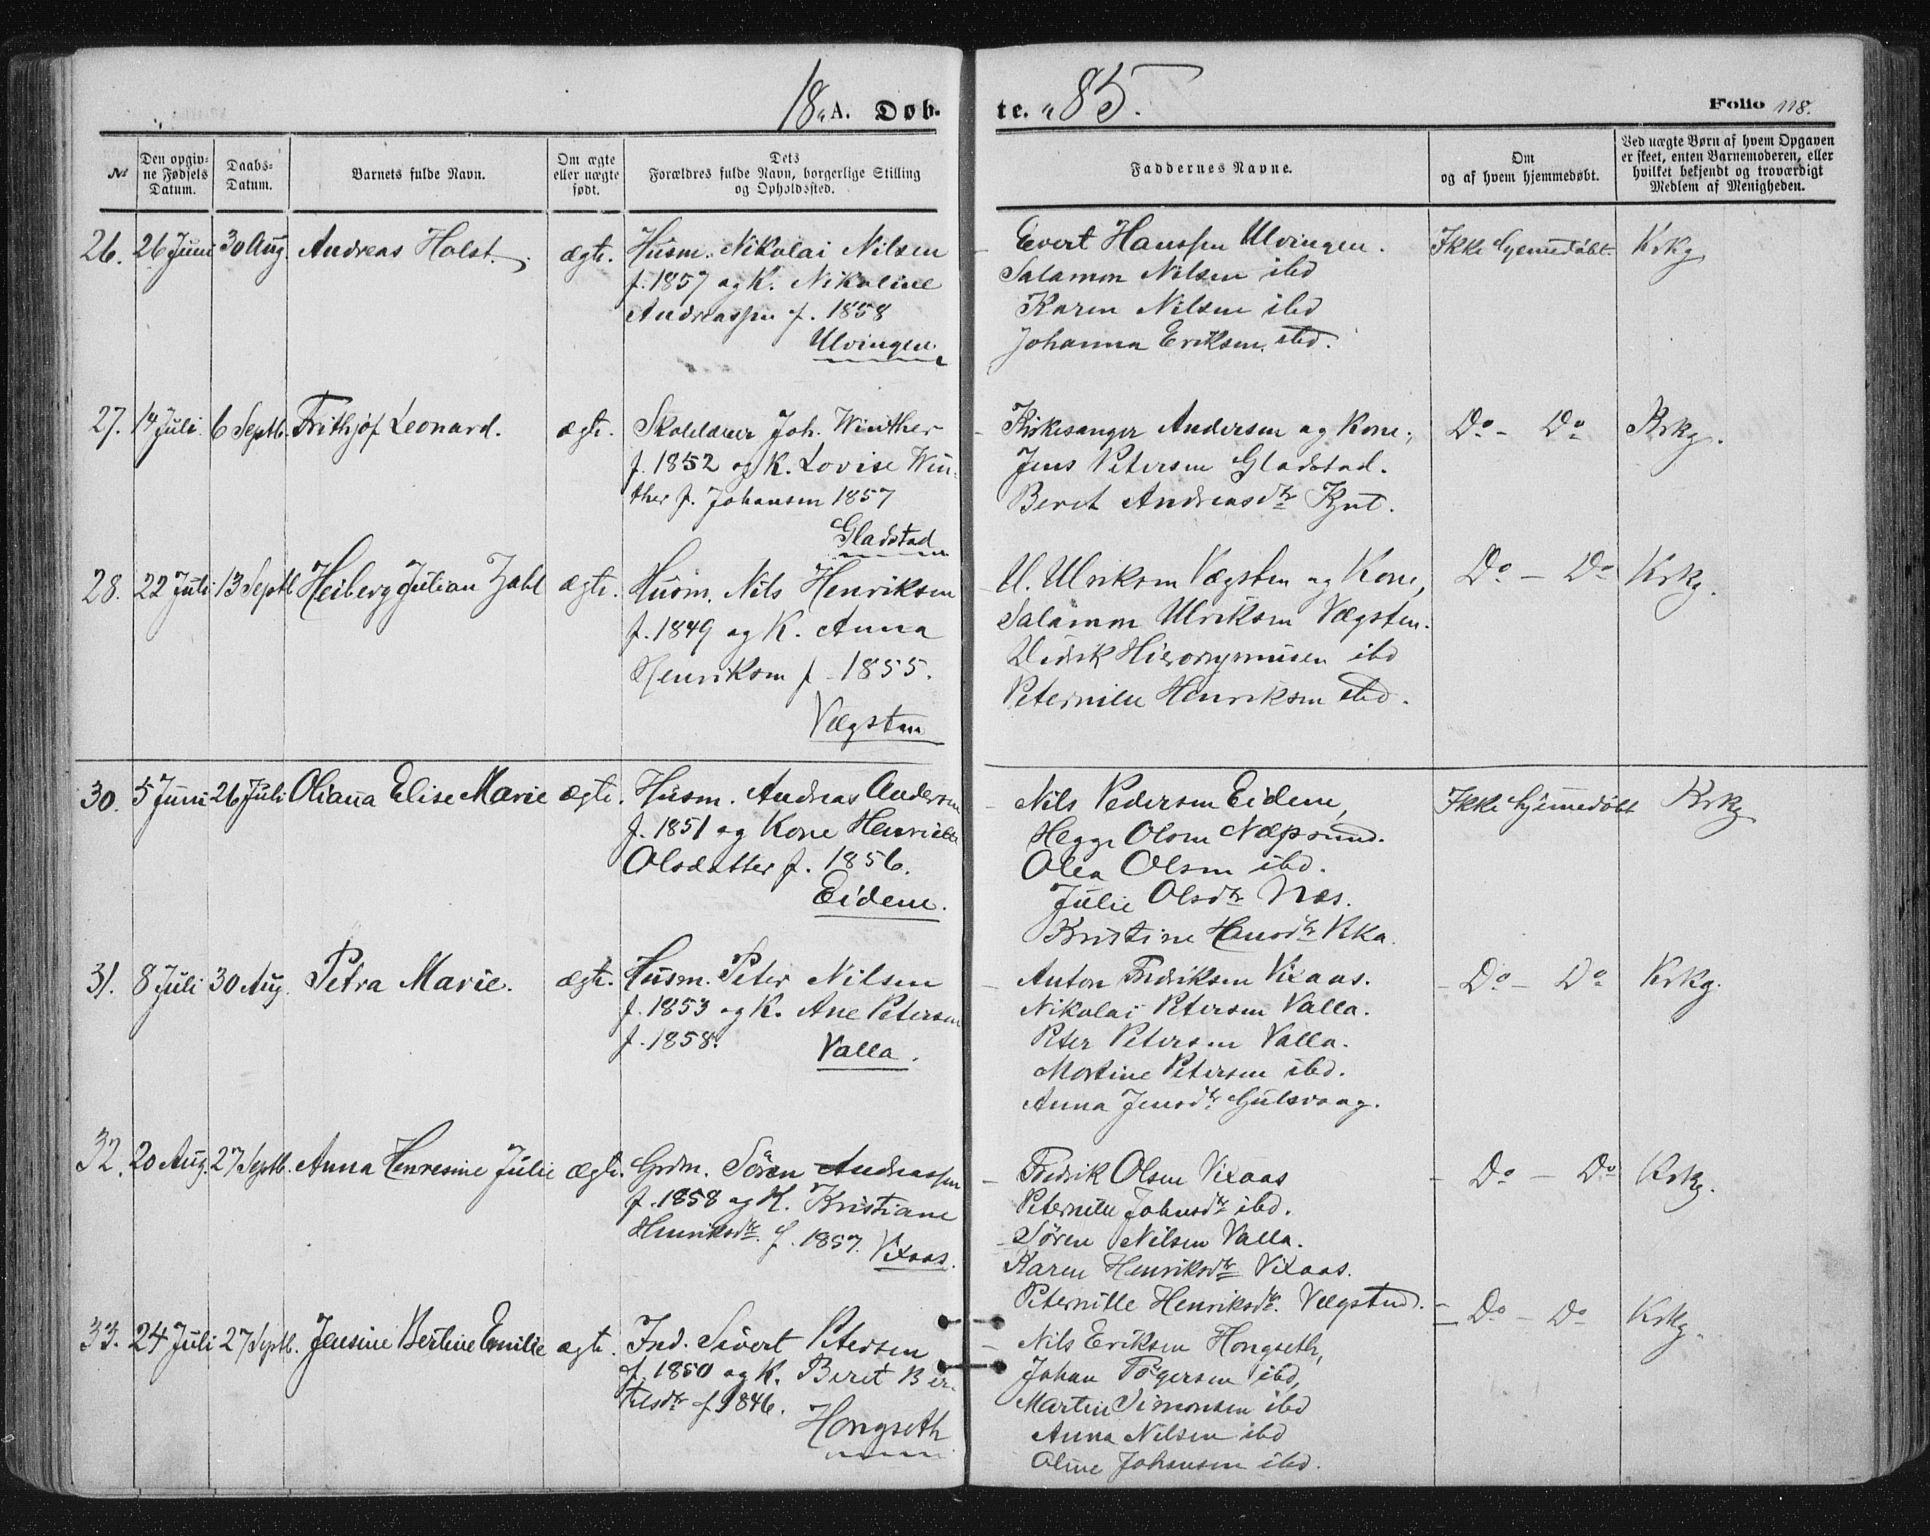 18 A. Døb-
te. 85.
Folio 118.
№
Den opgiv-
ne Fødsels
Datum.
Daabs-
Datum.
Barnets fulde Navn.
Om ægte
eller nægte
født.
Dets
Forældres fulde Navn, borgerlige Stilling
og Opholdssted.
Faddernes Navne.
Om
og af hvem hjemmedøbt.
Ved nægte Børn af hvem Opgaven
er skeet, enten Barnemoderen, eller
hvilket bekjendt og troværdigt
Medlem af Menigheden.
26. 26 Juni 30 Aug. Andreas Holst. ægte. Husm. Nikolai Nilsen
f. 1857 og K. Nikoline
Andreassen f. 1858
Ulvingen
Evert Hanssen Ulvingen. Ikke hjemmedøbt. Krkg
Salamon Nilsen ibd
Karen Nilsen ibd
Johanna Eriksen ibd.
27. 14 Juli. 6 Septb. Frithjof Leonard. ægte. Skolelærer Joh. Winther
f. 1852 og K. Lovise Win-
ther f. Johansen 1857
Gladstad
Kirkesanger Andersen og Kone, Do - Do Krkg.
Jens Petersen Gladstad.
Beret Andreasdtr
28. 22 Juli 13 Septb Heiberg Julian Zahl ægte. Husm. Nils Henriksen
f. 1849 og K. Anna
Henriksen f. 1855.
Vægsten
U. Ulriksen Vægsten og Kone, Do - Do Krkg.
Salamon Ulriksen Vægsten.
Didrik Hieronymusen ibd
Peternille Henriksen ibd.
30. 5 Juni 26 Juli Oliana Elise Marie ægte. Husm. Andreas Andersen
f. 1851 og Kone Henriette
Olsdatter f. 1856.
Eidene.
Nils Pedersen Eidene, Ikke hjemmedøbt Krkg
Hegge Olsen Næpsund.
Olea Olsen ibd.
Julie Olsdtr Næs.
Kristine Hansdtr Vika.
31. 8 Juli 30 Aug. Petra Marie. ægte. Husm. Peter Nilsen
f. 1853 og K. Ane Petersen
f. 1858.
Valla.
Anton Fredriksen Vixaas. Do - Do Krkg.
Nikolai Petersen Valla.
Peter Petersen Valla.
Martine Petersen ibd.
Anna Jensdtr Gulsvaag.
32. 20 Aug. 27 Septb. Anna Henresine Julie ægte. Grdm. Sören Andreassen
f. 1858 og K. Kristiane
Henriksdtr. f. 1857. Vixaas.
Fredrik Olsen Vixaas Do - Do Krkg.
Peternille Johnsdtr ibd.
Sören Nilsen Valla.
Karen Henriksdtr Vixaas.
Peternille Henriksdtr. Vægsted.
33. 24 Juli 27 Septb. Jensine Bertine Emilie ægte. Ind. Sivert Petersen
f. 1850 og K. Beret Ber-
telsdtr f. 1846.
Hongseth
Nils Eriksen Hongseth, Do - Do Krkg.
Johan Torgersen ibd,
Martin Simonsen ibd
Anna Nilsen ibd
Oline Johansen ibd.